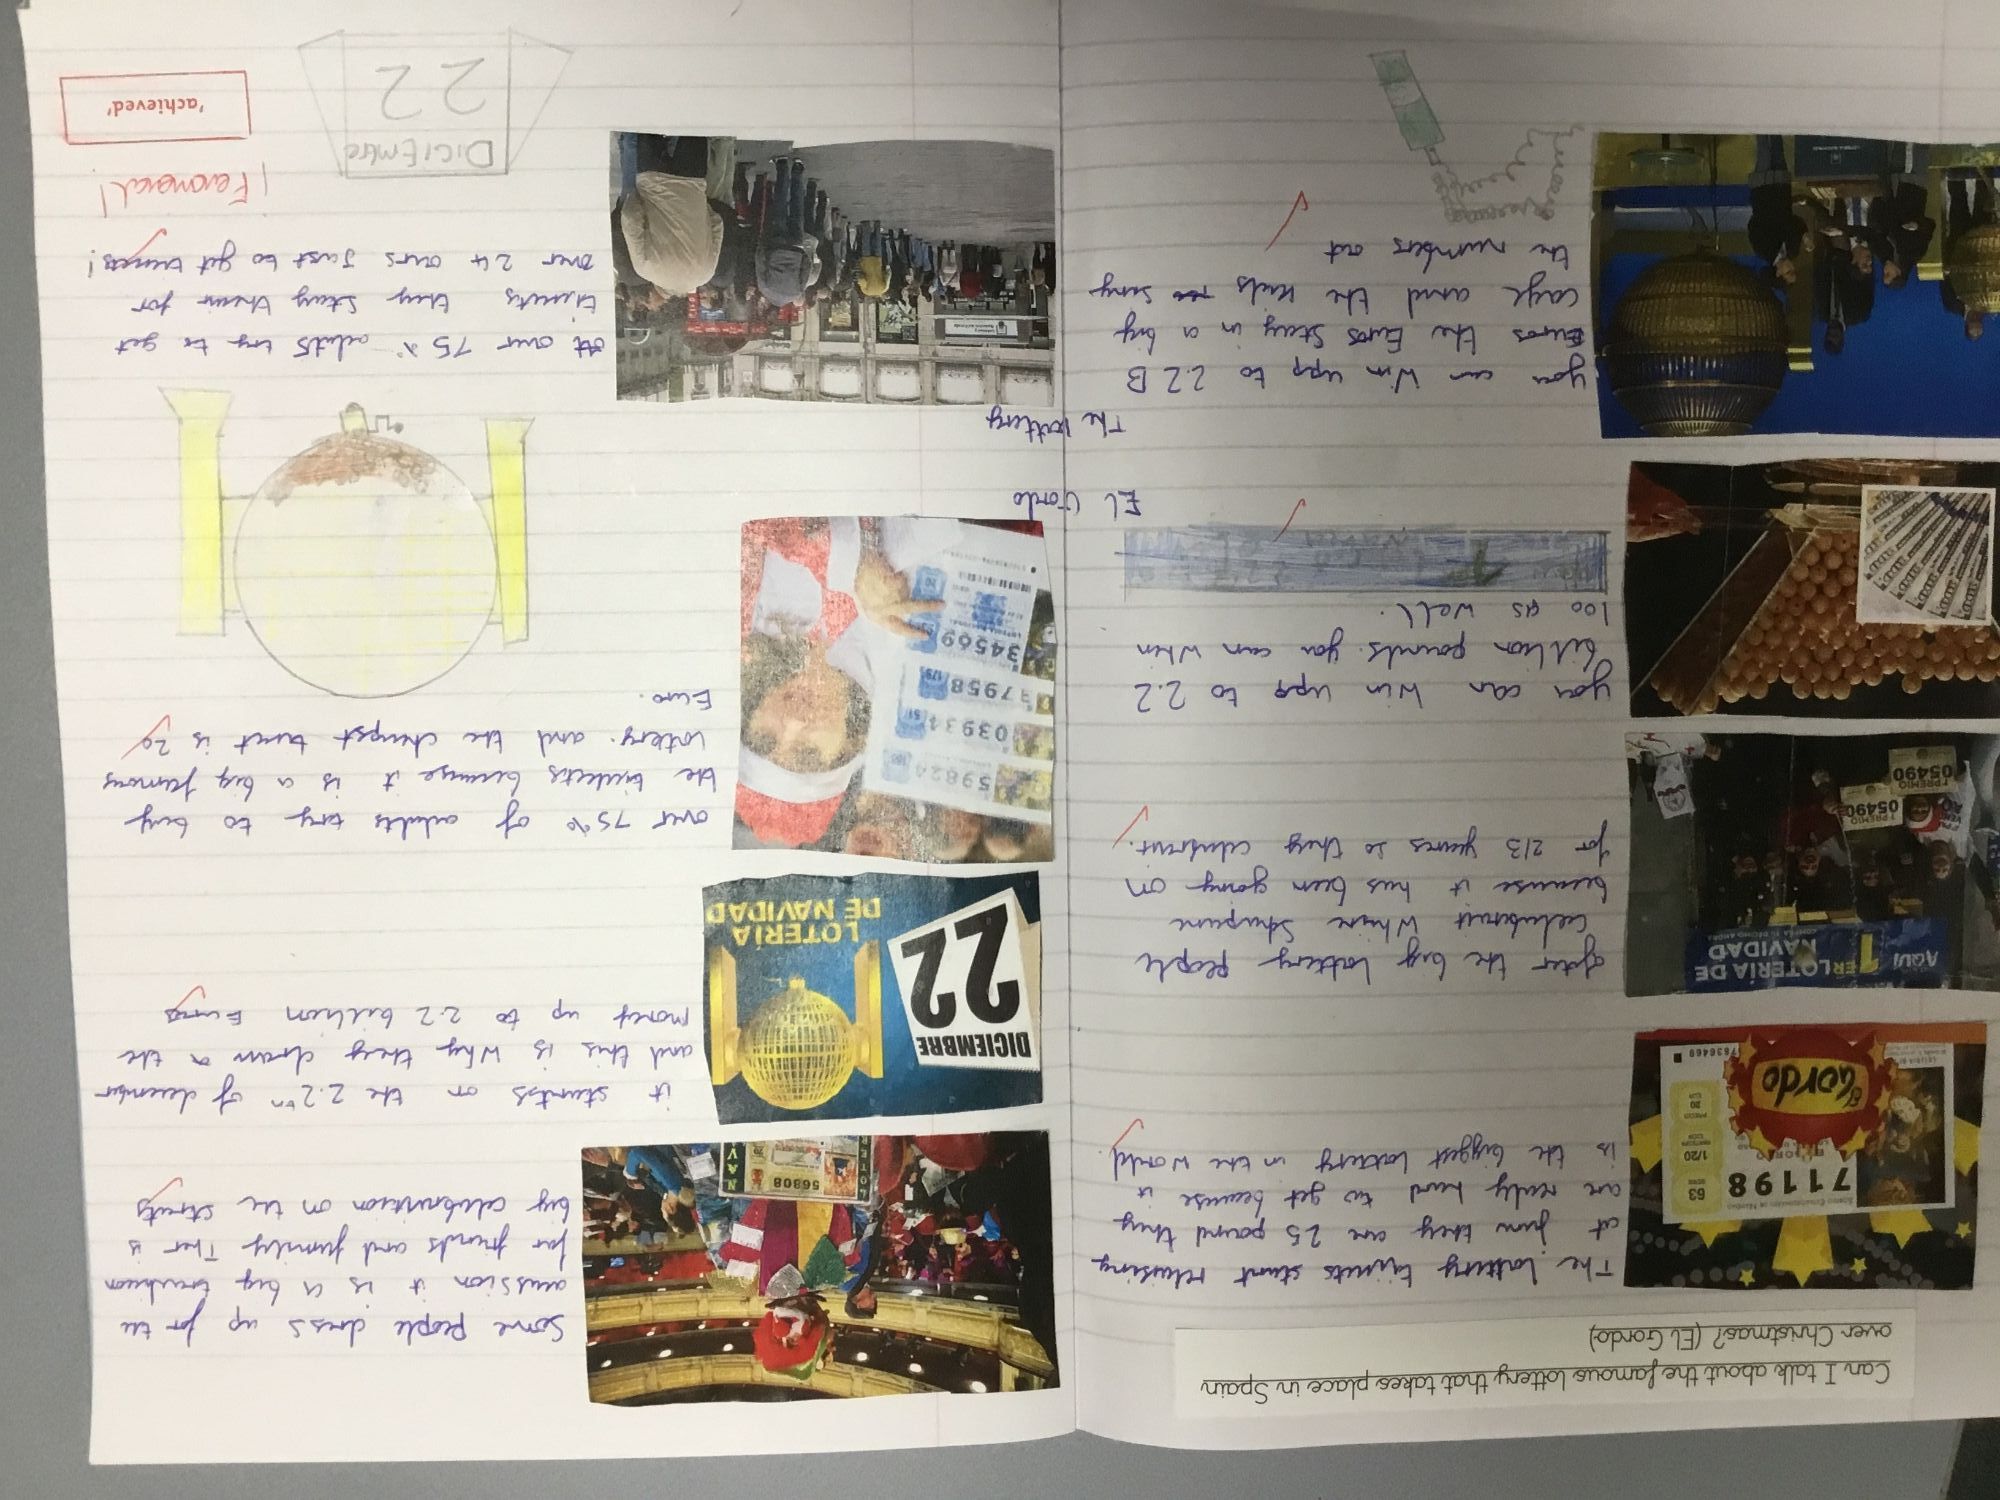 Can I talk about the famous lottery that takes place in Spain
over Christmas? (EL Gordo)
The lottery tickets start relasing
at jun they are 25 pound they
are really hard to get because it
is the biggest lottery in the world.
71198
63
1/20
20
El Gordo
7636469
after the big lottery people
because it has been going on
for 213 years so they
AQUI
1ER
LOTERIA DE
NAVIDAD
1 PREMIO
05490
1 PREMIO
05490
you can win upp to 2.2
billion pounds. you can when
100 as well.
EL Gordo
The lottery
you can win upp to 2.2 B
Euros the Euros stay in a big
cage and the kids sing
the numbers out
Some people dress up for the
it is a big
for friends and family Ther is
big on the
56808
LOTE
NAV
it on the 22tn of
and this is why they draw a the
money up to 2.2 billion Euros
DICIEMBRE
22
LOTERIA
DE NAVIDAD
over 75% of adults try to buy
the tickets because it is a big famous
lottery. and the is 20
Euro.
59824
03934
7958
34569
over 75% adults try to get
they stay their for
over 24 ours Just to get
¡Fenomenal!
DICIEMbre
22
'achieved'